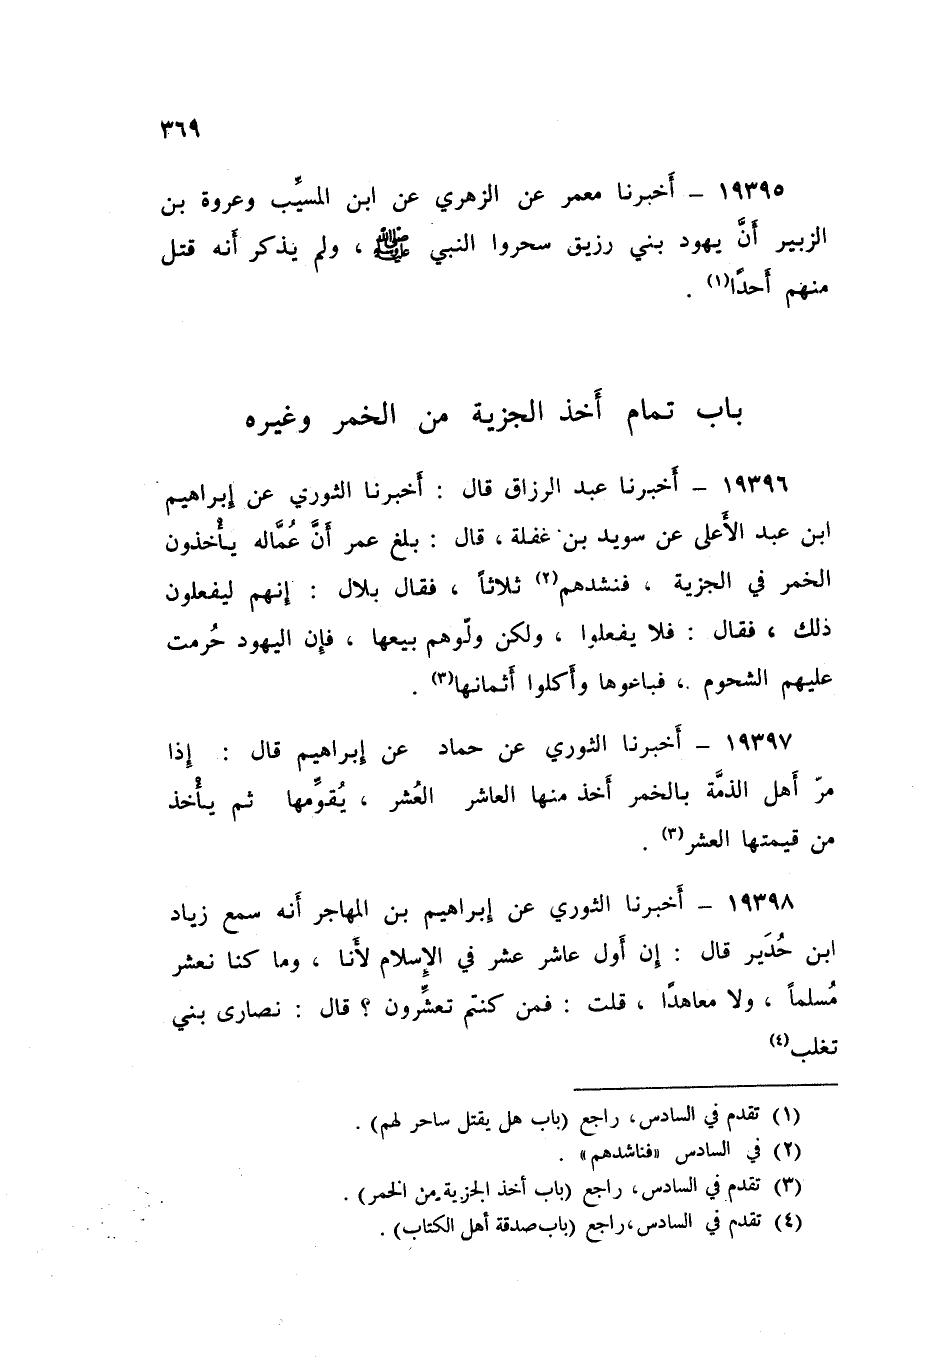 ٣٦٩
١٩٣٩٥ ــ أَخبرنا معمر عن الزهري عن ابن المسيِّب وعروة بن
الزبير أَنَّ يهود بني رزيق سحروا النبي ﷺ ، ولم يذكر أَنه قتل
منهم أَحدًا(١) .
باب تمام أَخذ الجزية من الخمر وغيره
١٩٣٩٦ ــ أَخبرنا عبد الرزاق قال : أَخبرنا الثوري عن إِبراهيم
ابن عبد الأَعلى عن سويد بن غفلة ، قال : بلغ عمر أَنَّ عُمَّاله يأْخذون
الخمر في الجزية ، فنشدهم(٢) ثلاثاً ، فقال بلال : إِنهم ليفعلون
ذلك ، فقال : فلا يفعلوا ، ولكن ولّوهم بيعها ، فإِن اليهود حُرمت
عليهم الشحوم ، فباعوها وأَكلوا أَثمانها(٣) .
١٩٣٩٧ ــ أَخبرنا الثوري عن حماد عن إِبراهيم قال : إِذا
مرّ أَهل الذمَّة بالخمر أَخذ منها العاشر العُشر ، يُقوِّمها ثم يأْخذ
من قيمتها العشر(٣) .
١٩٣٩٨ ــ أَخبرنا الثوري عن إِبراهيم بن المهاجر أَنه سمع زياد
ابن حُدَير قال : إِن أَول عاشر عشر في الإِسلام لأَنا ، وما كنا نعشر
مُسلماً ، ولا معاهدًا ، قلت : فمن كنتم تعشِّرون ؟ قال : نصارى بني
تغلب(٤)
(١) تقدم في السادس، راجع (باب هل يقتل ساحر لهم) .
(٢) في السادس «فناشدهم» .
(٣) تقدم في السادس، راجع (باب أخذ الجزية من الخمر) .
(٤) تقدم في السادس،راجع (باب صدقة أهل الكتاب) .